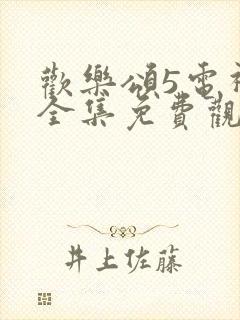 歡樂頌5電視
全集免費觀
井上佐藤